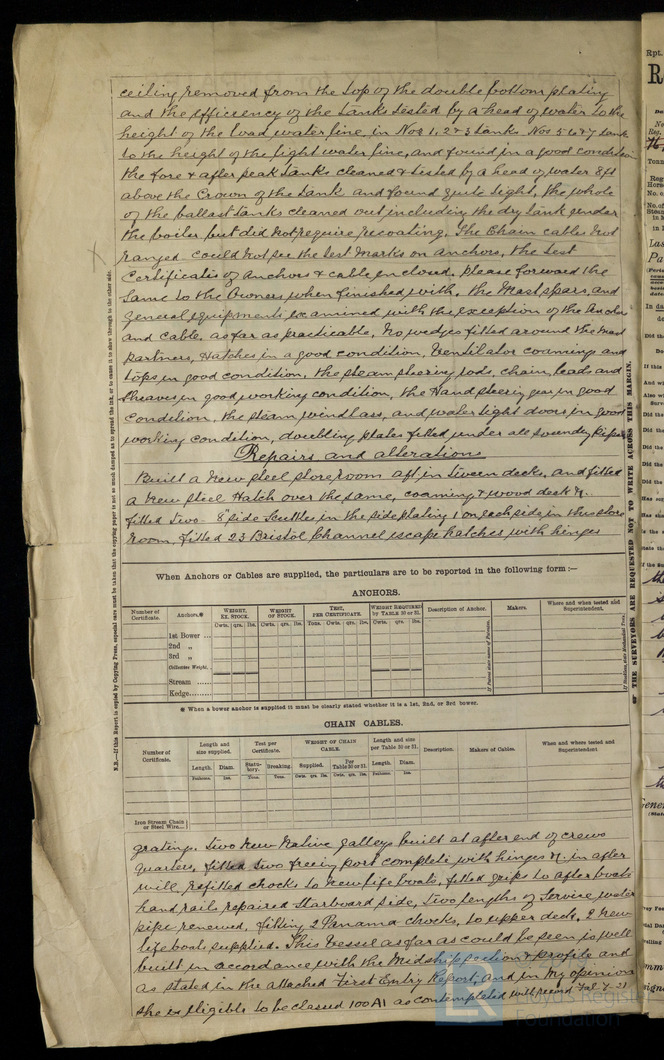 ceiling removed from the top of the double bottom plating
and the efficiency of the tanks tested by a head of water to the
height of the load water line, in Nos 1, 2 & 3 tanks Nos 5 6 & 7 tank
to the height of the light water line, and found in a good condition
the fore & after peak tanks cleaned & tested by a head of water 8ft
above the Crown of the tank and found quite tight, the whole
of the ballast tanks cleaned out including the dry tank under
the boiler but did not require recoating. The Chain cables not
ranged could not see the test marks on anchors, the test
Certificates of Anchors & cable enclosed. please forward the
same to the Owners when finished with. the Mast spars, and
general equipments examined with the exception of the Anchor
and cable. as far as practicable, No wedges fitted around the mast
partners, Hatches in a good condition, Ventilator coamings and
tops in good condition, the steam steering rods, chain, leads and
Sheaves in good working condition, the Hand steering gear in good
condition, the steam windlass, and water tight doors in good
working condition, doubling plates fitted under all sounding pipes
Repairs and alterations
Built a new steel storeroom aft in tween decks, and fitted
a new steel Hatch over the same, coaming & wood deck &.
fitted two 8" side scuttles in the side plating 1 on each side in the store
room, fitted 23 Bristol Channel escape hatches with hinges
When Anchors or Cables are supplied, the particulars are to be reported in the following form :—
ANCHORS.
Number of Certificate. Anchors.* WEIGHT, EX. STOCK. WEIGHT OF STOCK. TEST, PER CERTIFICATE. WEIGHT REQUIRED by TABLE 30 or 31. Description of Anchor. Makers. Where and when tested and Superintendent.
Cwts. qrs. lbs. Cwts. qrs. lbs. Tons. Cwts. qrs. lbs. Cwts. qrs. lbs.
1st Bower ...
2nd „
3rd „
Collective Weight.
Stream ......
Kedge.........
* When a bower anchor is supplied it must be clearly stated whether it is a 1st, 2nd, or 3rd bower.
CHAIN CABLES.
Number of Certificate. Length and size supplied. Test per Certificate. WEIGHT OF CHAIN CABLE. Length and size per Table 30 or 31. Description. Makers of Cables. When and where tested and Superintendent
Length. Diam. Statutory. Breaking. Supplied. Per Table 30 or 31. Length. Diam.
Fathoms. Ins. Tons. Tons. Cwts. qrs. lbs. Cwts. qrs. lbs. Fathoms. Ins.
Iron Stream Chain or Steel Wire...
grating. two new Native galleys built at after end of crews
quarters, fitted two freeing port complete with hinges &. in after
well, refitted chocks to new life boats, fitted grips to after boats
hand rails repaired Starboard side, two lengths of Service water
pipe renewed, fitting 2 Panama chocks, to upper deck. 2 new
life boats supplied. This Vessel as far as could be seen is well
built in accordance with the Midship section & profile and
as stated in the attached First Entry Report, and in my opinion
she is eligible to be classed 100 A1 as contemplated with record
N.B.—If this Report is copied by Copying Press, especial care must be taken that the copying paper is not so much damped as to spread the ink, or to cause it to show through to the other side.
THE SURVEYORS ARE REQUESTED NOT TO WRITE ACROSS THIS MARGIN.
Rpt.
Foundation